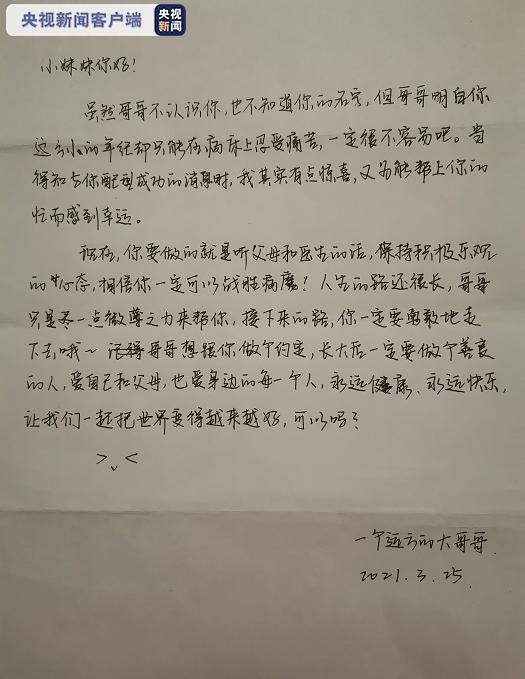 央视新闻客户端
央视
新闻
小妹妹你好！
虽然哥哥不认识你，也不知道你的名字，但哥哥明白你
这么小的年纪却只能在病床上忍受痛苦，一定很不容易吧。当
得知与你配型成功的消息时，我其实有点惊喜，又为能帮上你的
忙而感到幸运。
现在，你要做的就是听父母和医生的话，保持积极乐观
的心态，相信你一定可以战胜病魔！人生的路还很长，哥哥
只是尽一点微薄之力来帮你，接下来的路，你一定要勇敢地走
下去哦～ 哥哥想跟你做个约定，长大后一定要做个善良
的人，爱自己和父母，也爱身边的每一个人，永远健康、永远快乐，
让我们一起把世界变得越来越好，可以吗？
>ᵥ<
一个远方的大哥哥.
2021.3.25.